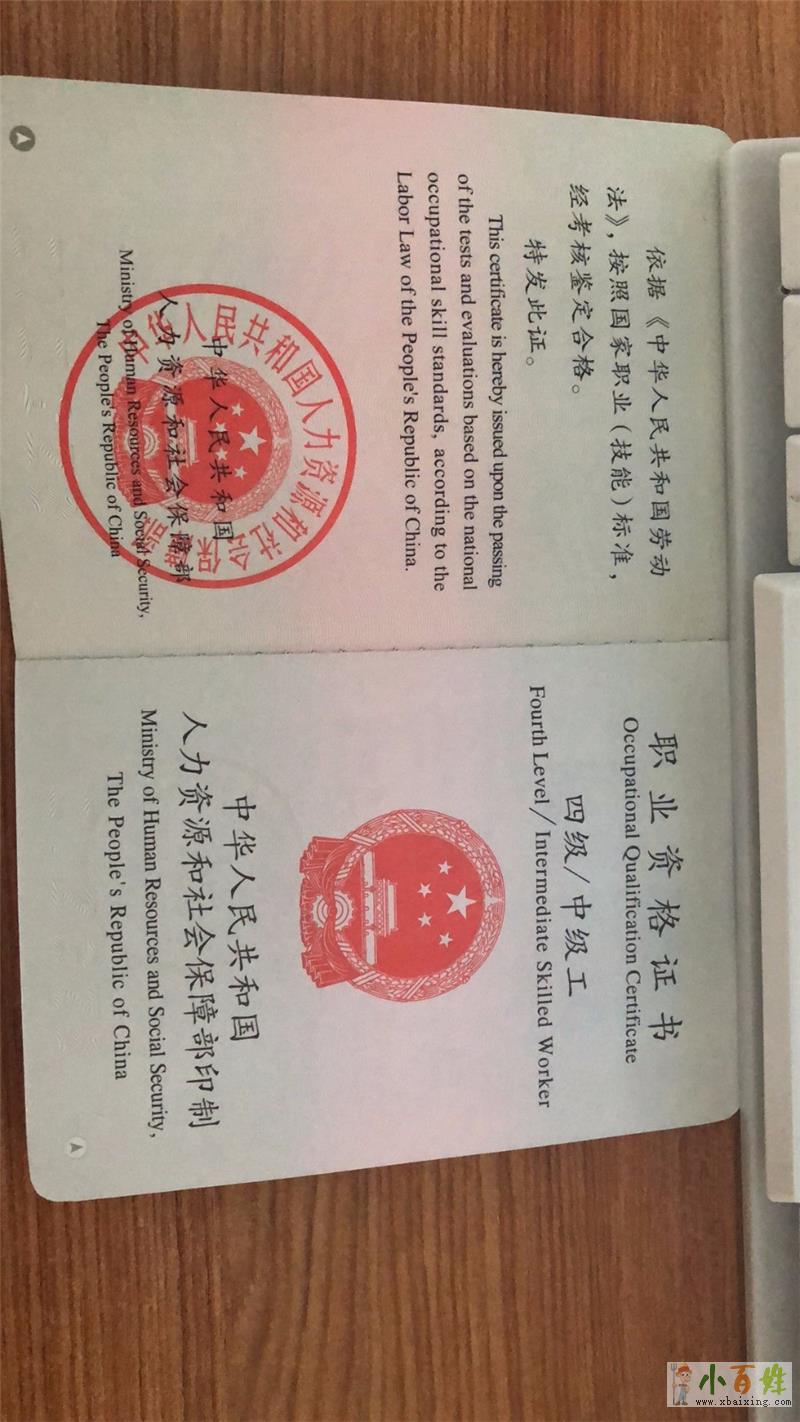 依据《中华人民共和国劳动
法》，按照国家职业（技能）标准，
经考核鉴定合格。
特发此证。
This certificate is hereby issued upon the passing
of the tests and evaluations based on the national
occupational skill standards, according to the
Labor Law of the People's Republic of China.
中华人民共和国人力资源和社会保障部
中华人民共和国
人力资源和社会保障部
Ministry of Human Resources and Social Security,
The People's Republic of China
职业资格证书
Occupational Qualification Certificate
四级/中级工
Fourth Level/Intermediate Skilled Worker
中华人民共和国
人力资源和社会保障部印制
Ministry of Human Resources and Social Security,
The People's Republic of China
小百姓
www.xbaixing.com